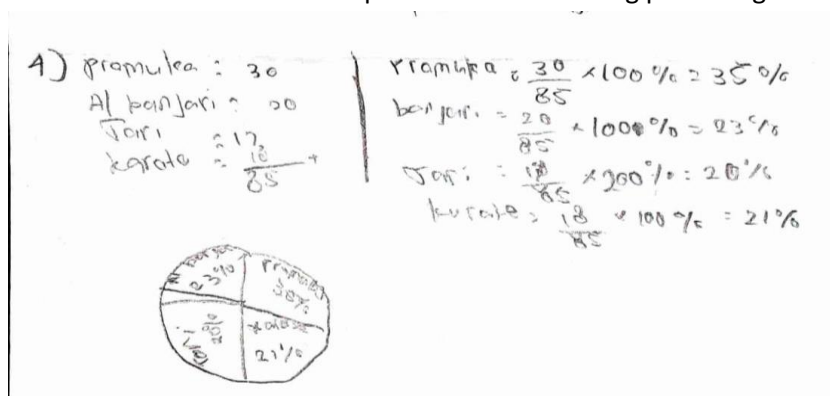 4) pramuka : 30
Al banjari : 20
Tari : 17
karate = 18 +
85
Pramuka : 30/85 x 100 % = 35 %
banjari = 20/85 x 100 % = 23 %
Tari : /85 x 100 % : 20 %
karate = 18/85 x 100 % = 21 %
Al banjari 23%
Pramuka 30%
Tari 20%
karate 21%